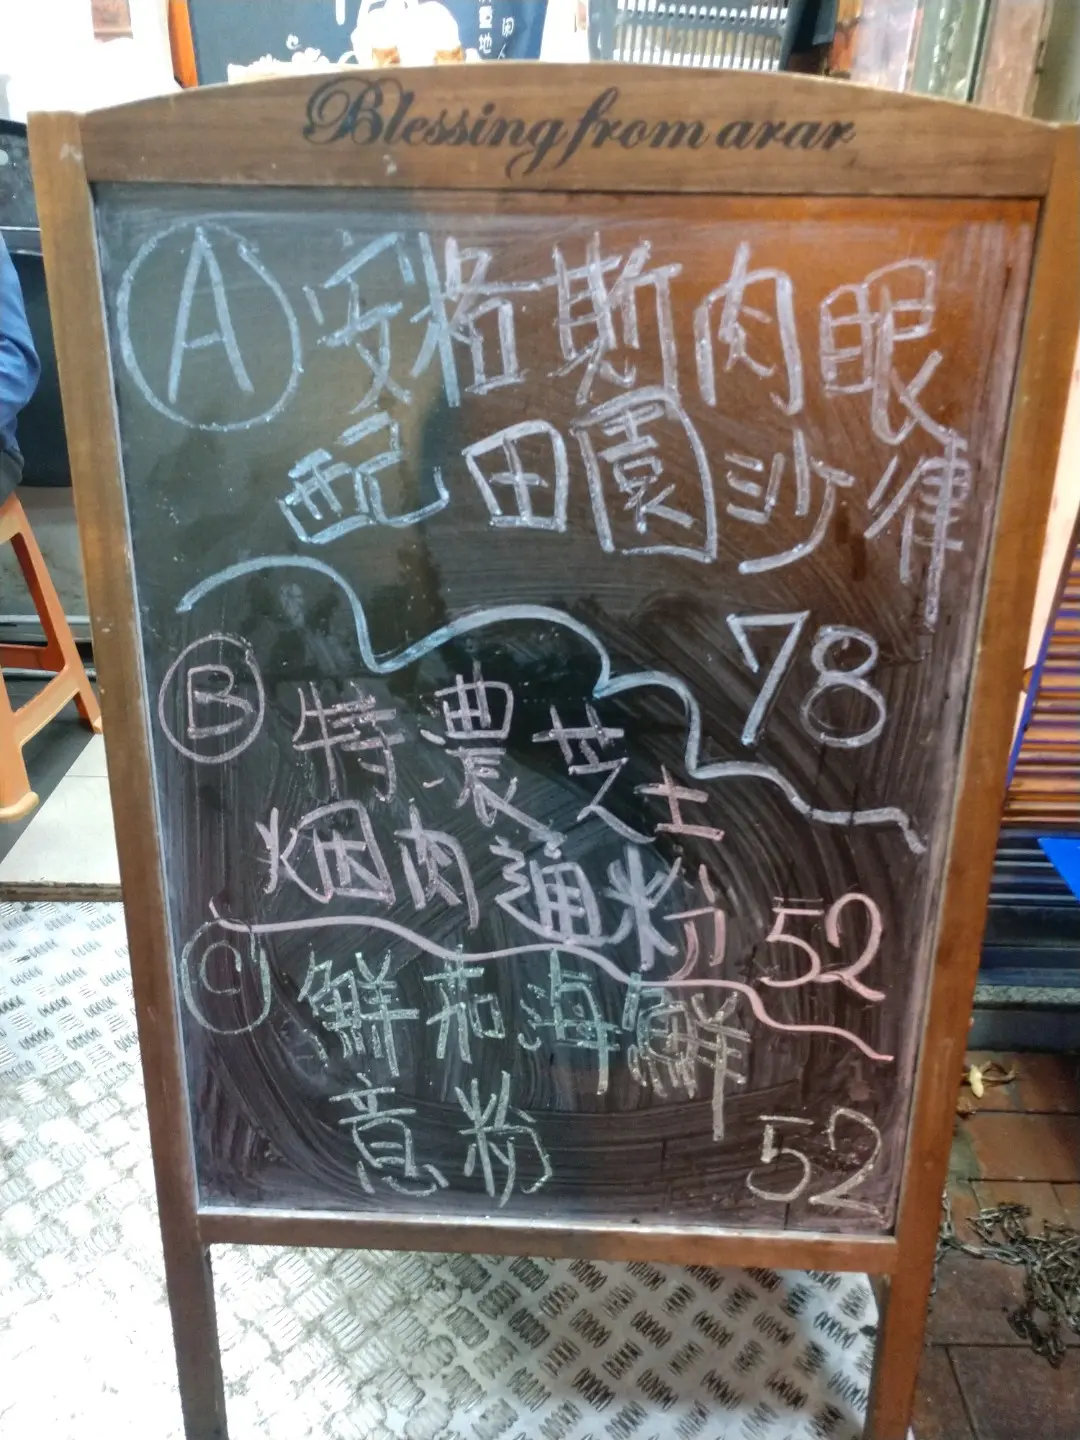 Blessing from arar
A 安格斯肉眼
配田園沙律
78
B 特濃芝士
烟肉通粉 52
C 鮮茄海鮮
意粉 52